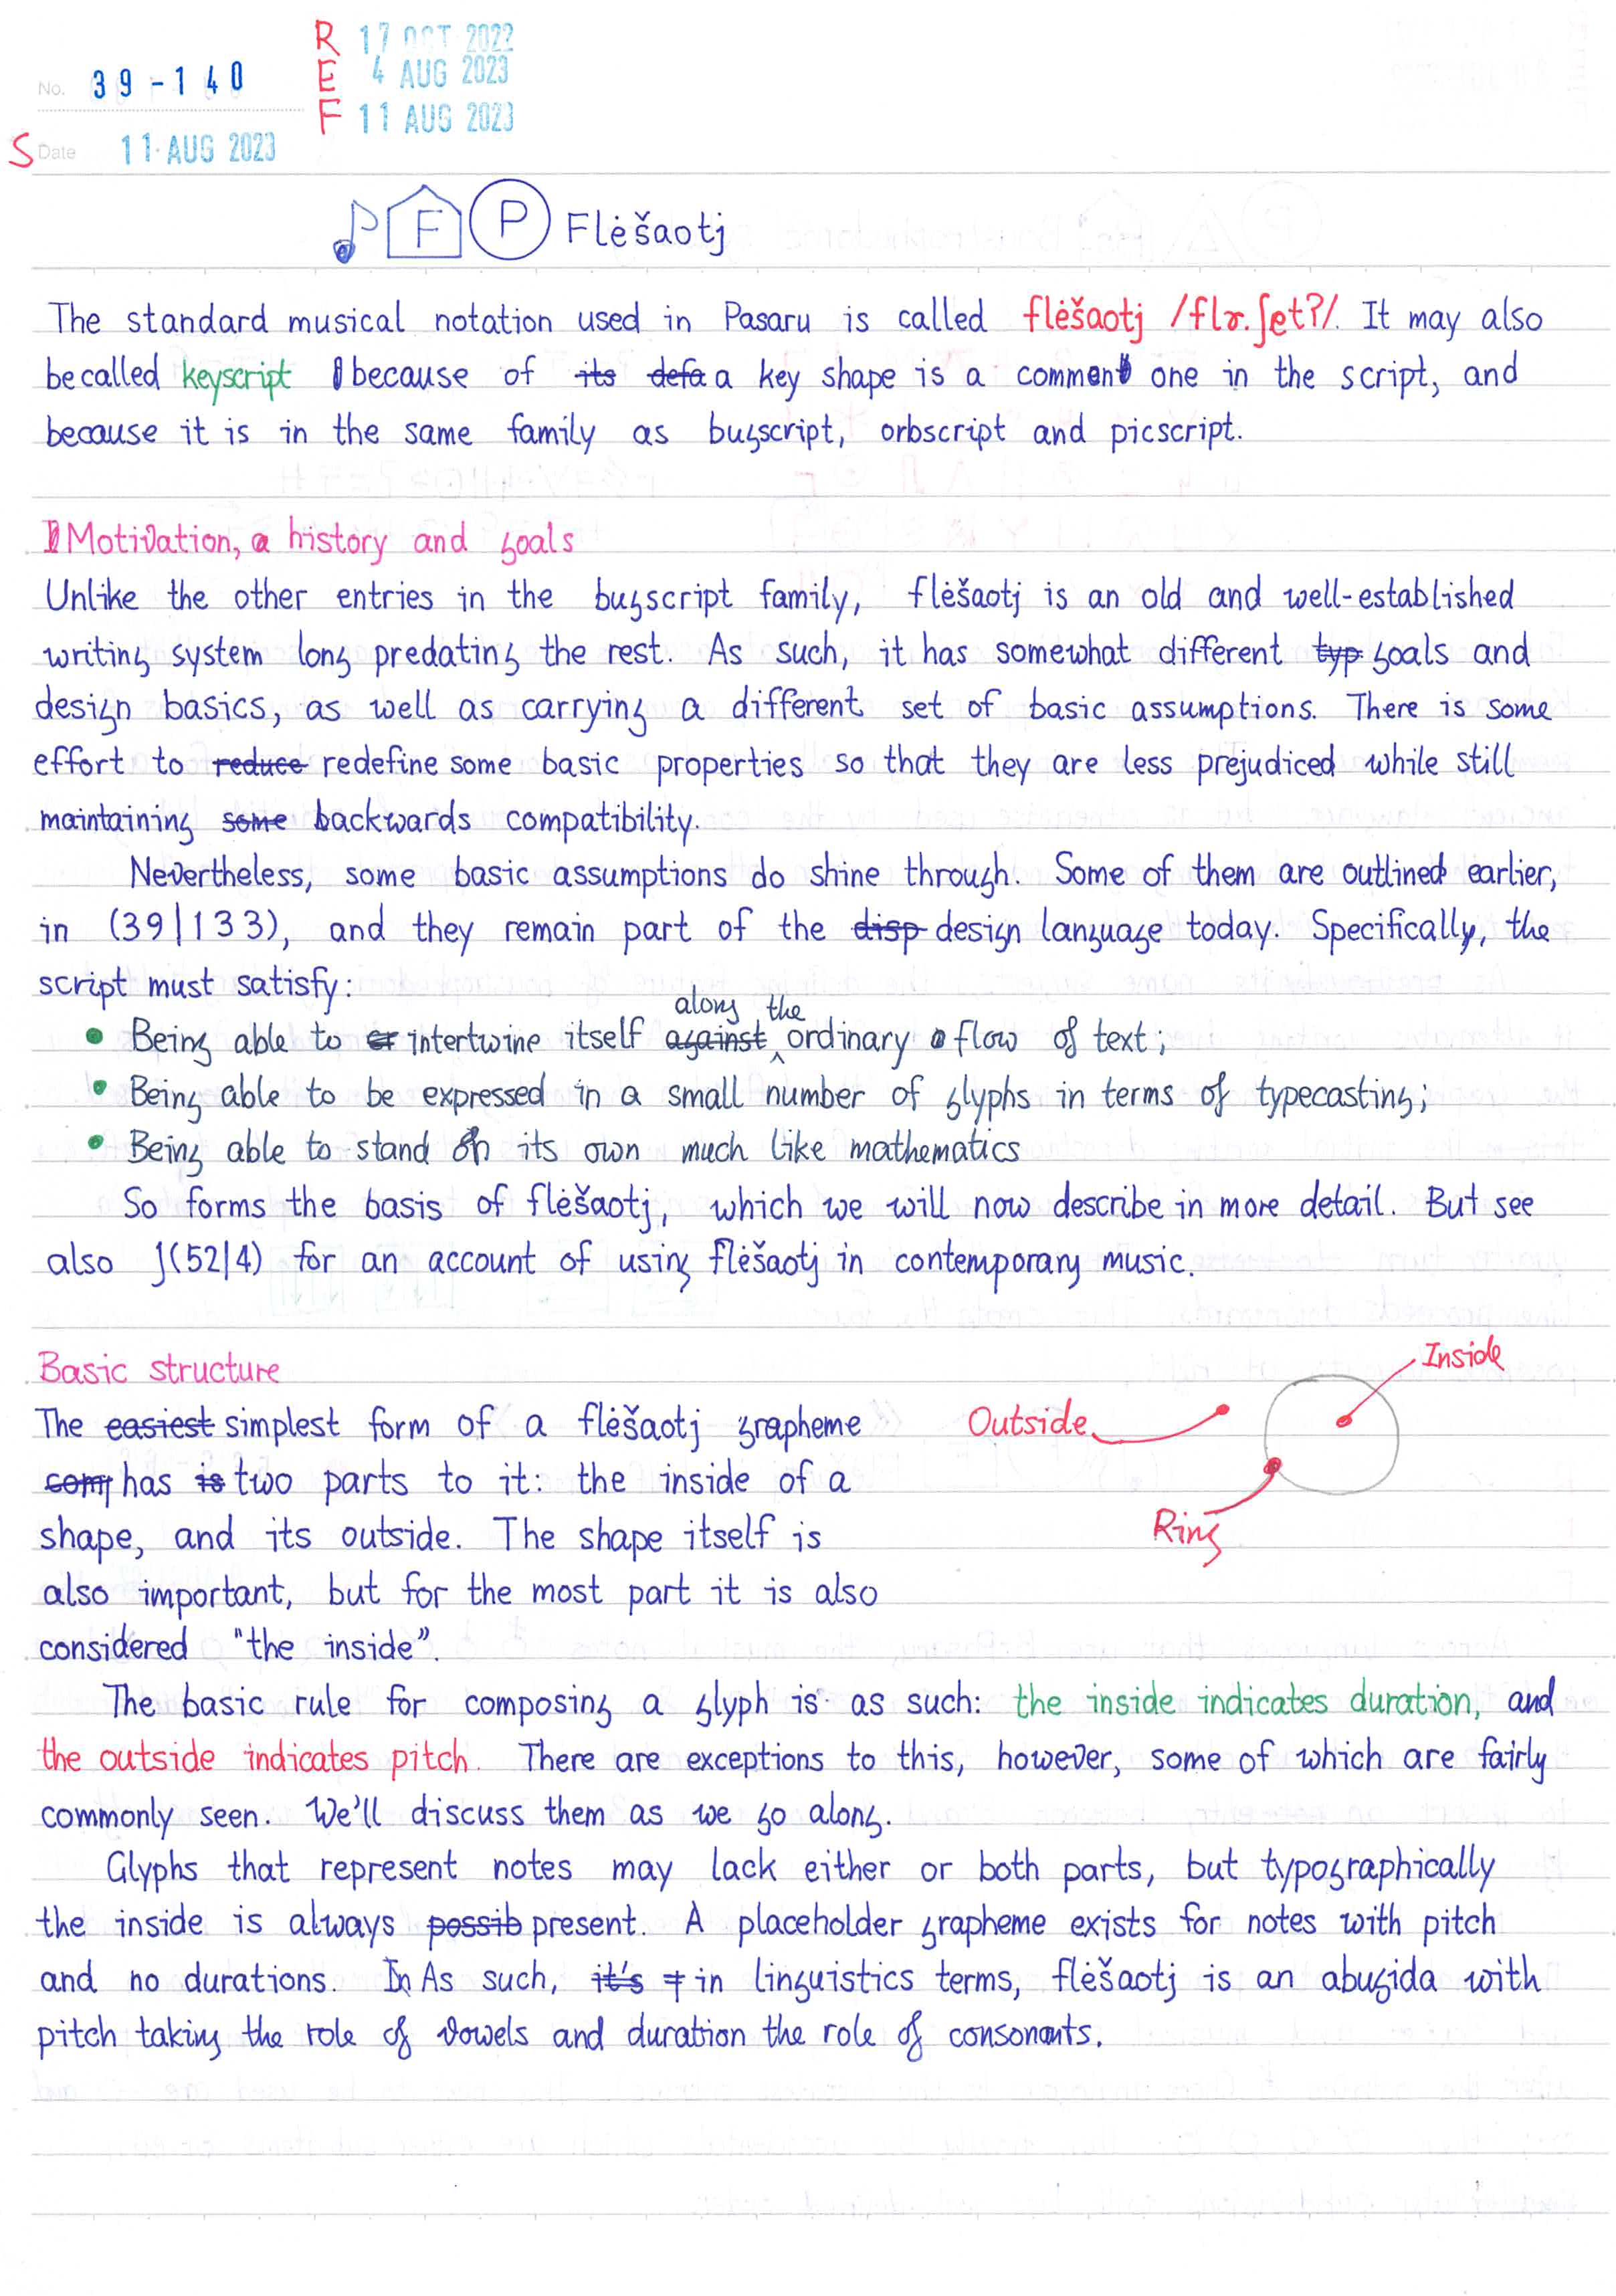 No. 39-140
R 17 OCT 2022
E 4 AUG 2023
F 11 AUG 2023
S Date 11 AUG 2023
F P Flėšaotj
The standard musical notation used in Pasaru is called flėšaotj /flɤ.ʃɐtʔ/. It may also
be called keyscript because of its defa a key shape is a common one in the script, and
because it is in the same family as bugscript, orbscript and picscript.
Motivation, a history and goals
Unlike the other entries in the bugscript family, flėšaotj is an old and well-established
writing system long predating the rest. As such, it has somewhat different typ goals and
design basics, as well as carrying a different set of basic assumptions. There is some
effort to reduce redefine some basic properties so that they are less prejudiced while still
maintaining some backwards compatibility.
Nevertheless, some basic assumptions do shine through. Some of them are outlined earlier,
in (39|133), and they remain part of the disp design language today. Specifically, the
script must satisfy:
• Being able to er intertwine itself against along the ordinary flow of text;
• Being able to be expressed in a small number of glyphs in terms of typecasting;
• Being able to stand on its own much like mathematics
So forms the basis of flėšaotj, which we will now describe in more detail. But see
also J(52|4) for an account of using flėšaotj in contemporary music.
Basic structure
Inside
Outside
Ring
The easiest simplest form of a flėšaotj grapheme
comp has is two parts to it: the inside of a
shape, and its outside. The shape itself is
also important, but for the most part it is also
considered "the inside".
The basic rule for composing a glyph is as such: the inside indicates duration, and
the outside indicates pitch. There are exceptions to this, however, some of which are fairly
commonly seen. We'll discuss them as we go along.
Glyphs that represent notes may lack either or both parts, but typographically
the inside is always possib present. A placeholder grapheme exists for notes with pitch
and no durations. In As such, it's in linguistics terms, flėšaotj is an abugida with
pitch taking the role of vowels and duration the role of consonants.